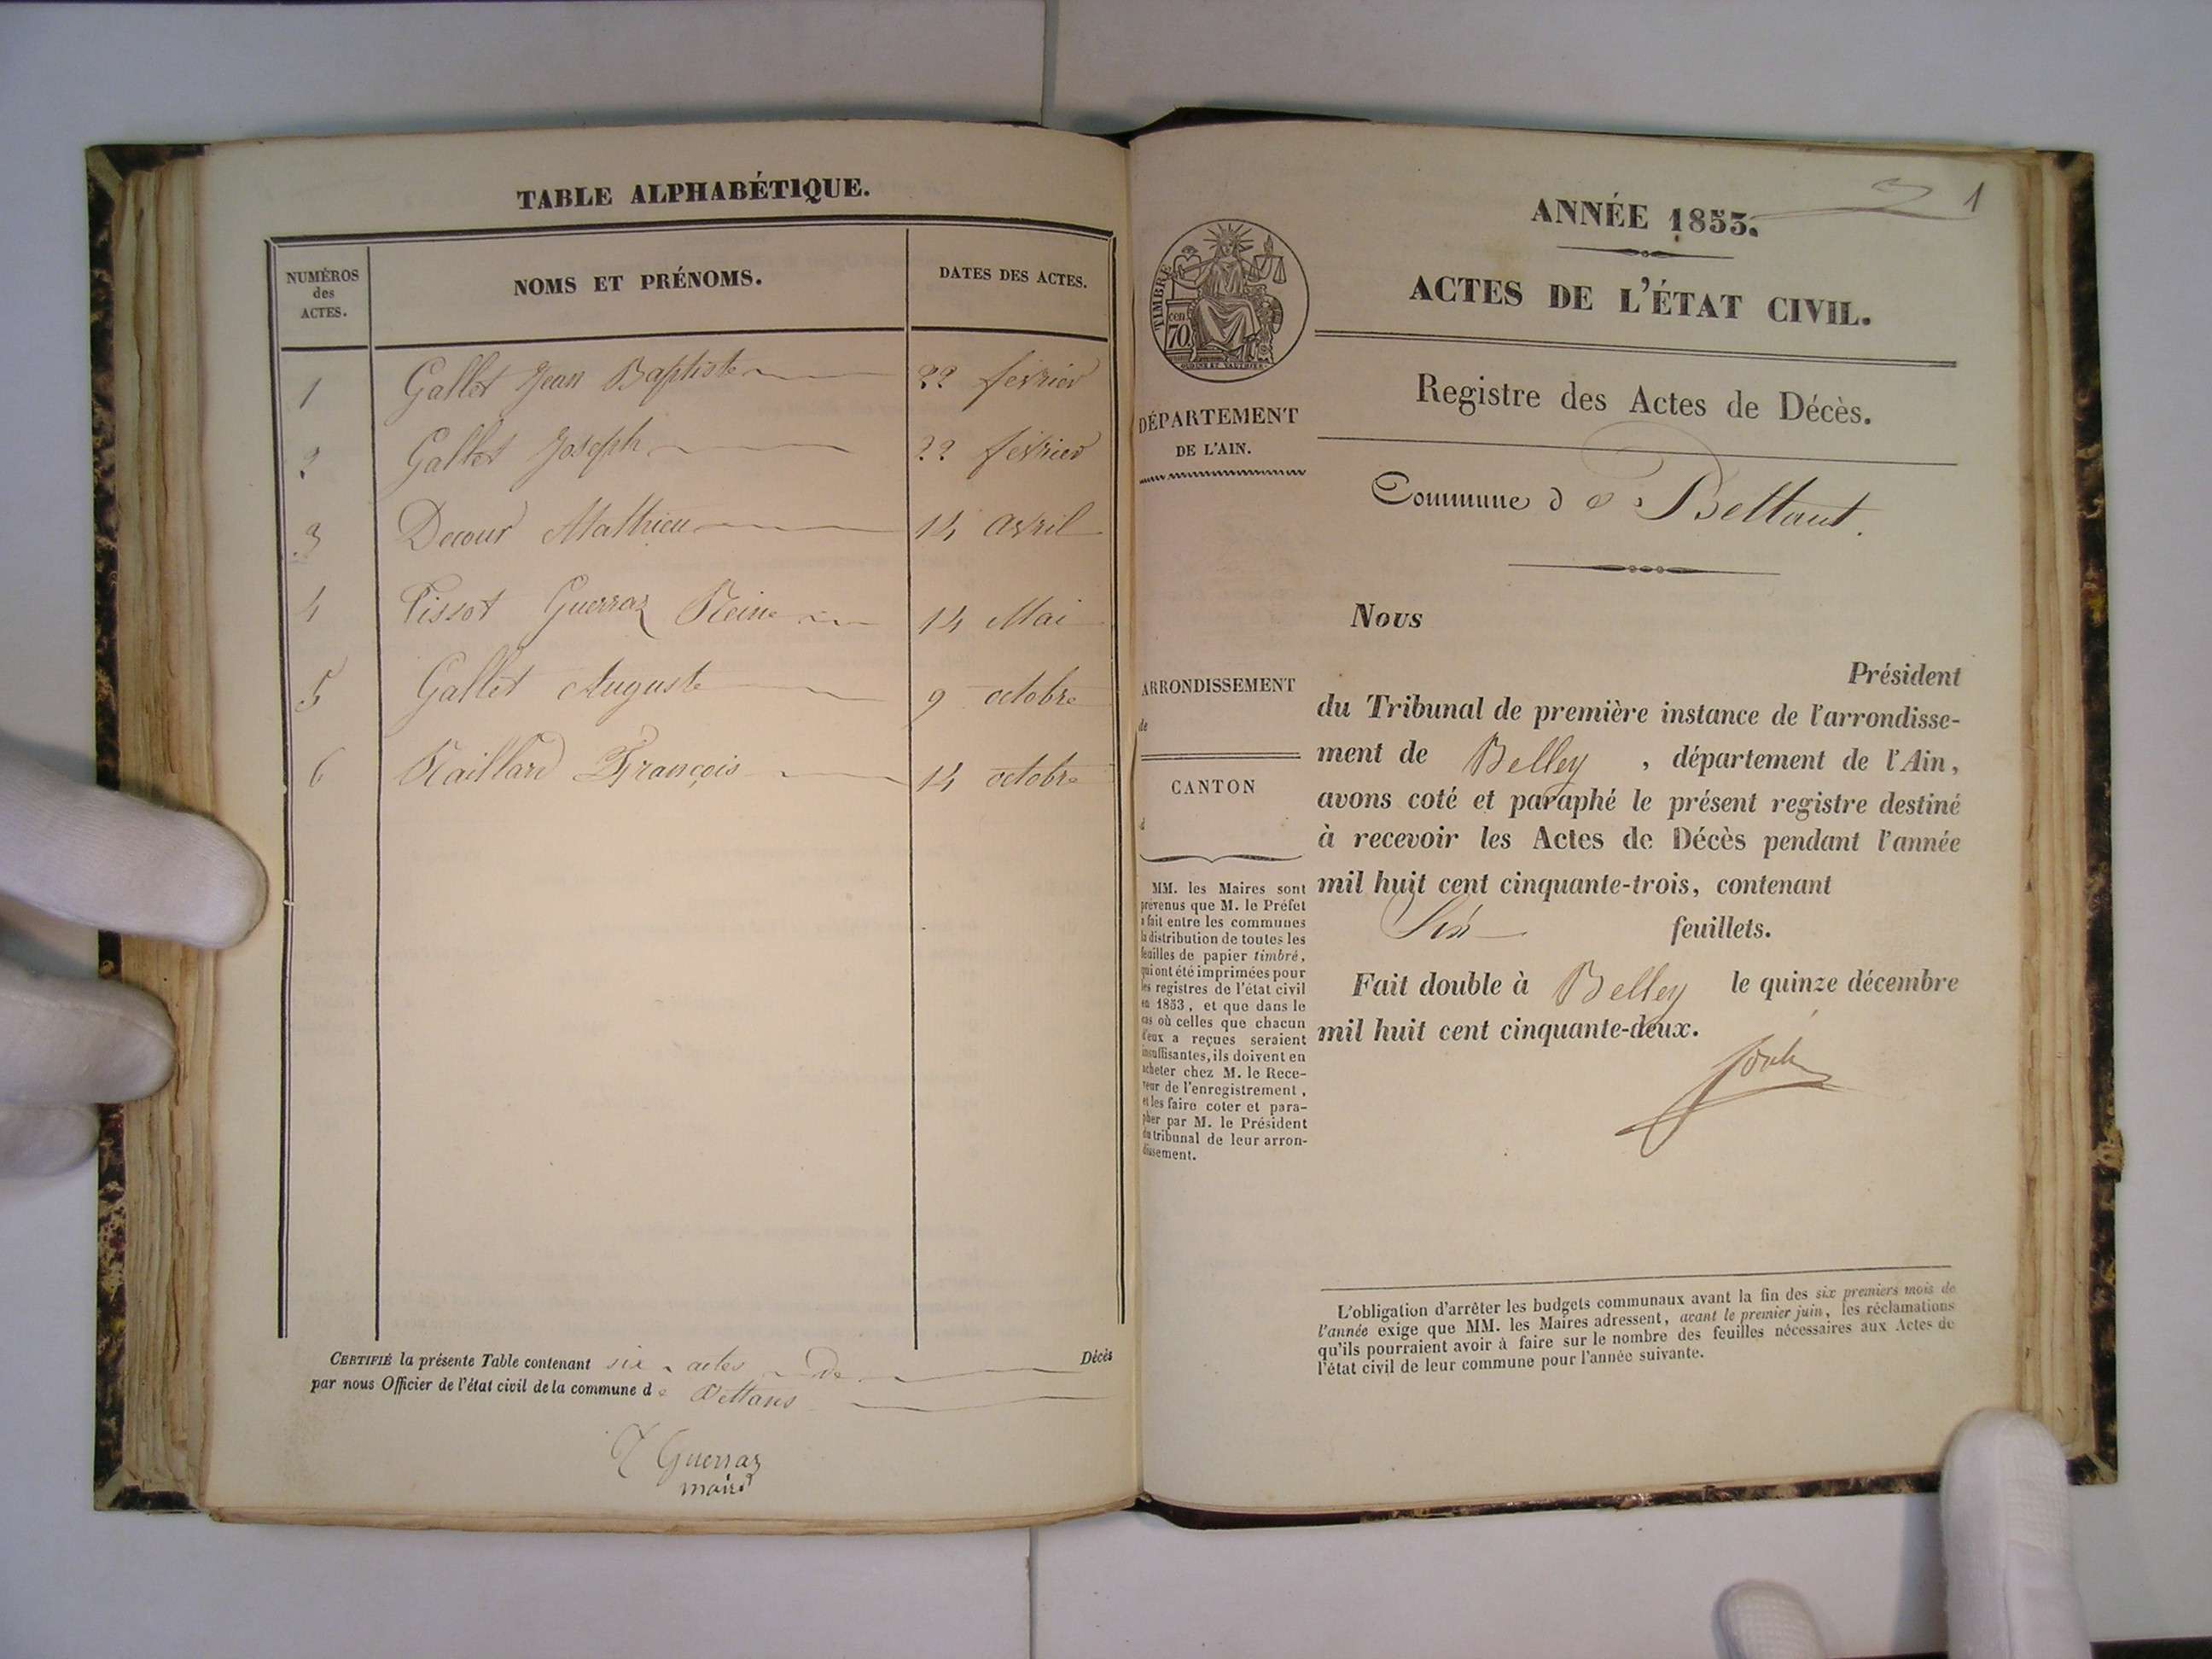 TABLE ALPHABÉTIQUE.
NUMÉROS
des
ACTES.
NOMS ET PRÉNOMS.
DATES DES ACTES.
1 Gallet Jean Baptiste 22 février
2 Gallet Joseph 22 février
3 Decour Mathieu 14 avril
4 Pissot Guerraz Reine 14 Mai
5 Gallet Auguste 9 octobre
6 Raillard François 14 octobre
CERTIFIÉ la présente Table contenant six actes de Décès
par nous Officier de l'état civil de la commune de Bettans
Guerraz
maire
1
ANNÉE 1853.
ACTES DE L'ÉTAT CIVIL.
TIMBRE
cen
70
OUDINE ET VAUTHIER
Registre des Actes de Décès.
DÉPARTEMENT
DE L'AIN.
Commune de Bettant.
Nous
Président
du Tribunal de première instance de l'arrondisse-
ment de Belley, département de l'Ain,
avons coté et paraphé le présent registre destiné
à recevoir les Actes de Décès pendant l'année
mil huit cent cinquante-trois, contenant
Six feuillets.
Fait double à Belley le quinze décembre
mil huit cent cinquante-deux.
ARRONDISSEMENT
de
CANTON
d
MM. les Maires sont
prévenus que M. le Préfet
a fait entre les communes
la distribution de toutes les
feuilles de papier timbré,
qui ont été imprimées pour
les registres de l'état civil
en 1853, et que dans le
cas où celles que chacun
d'eux a reçues seraient
insuffisantes, ils doivent en
acheter chez M. le Rece-
veur de l'enregistrement,
et les faire coter et para-
pher par M. le Président
du tribunal de leur arron-
dissement.
L'obligation d'arrêter les budgets communaux avant la fin des six premiers mois de
l'année exige que MM. les Maires adressent, avant le premier juin, les réclamations
qu'ils pourraient avoir à faire sur le nombre des feuilles nécessaires aux Actes de
l'état civil de leur commune pour l'année suivante.